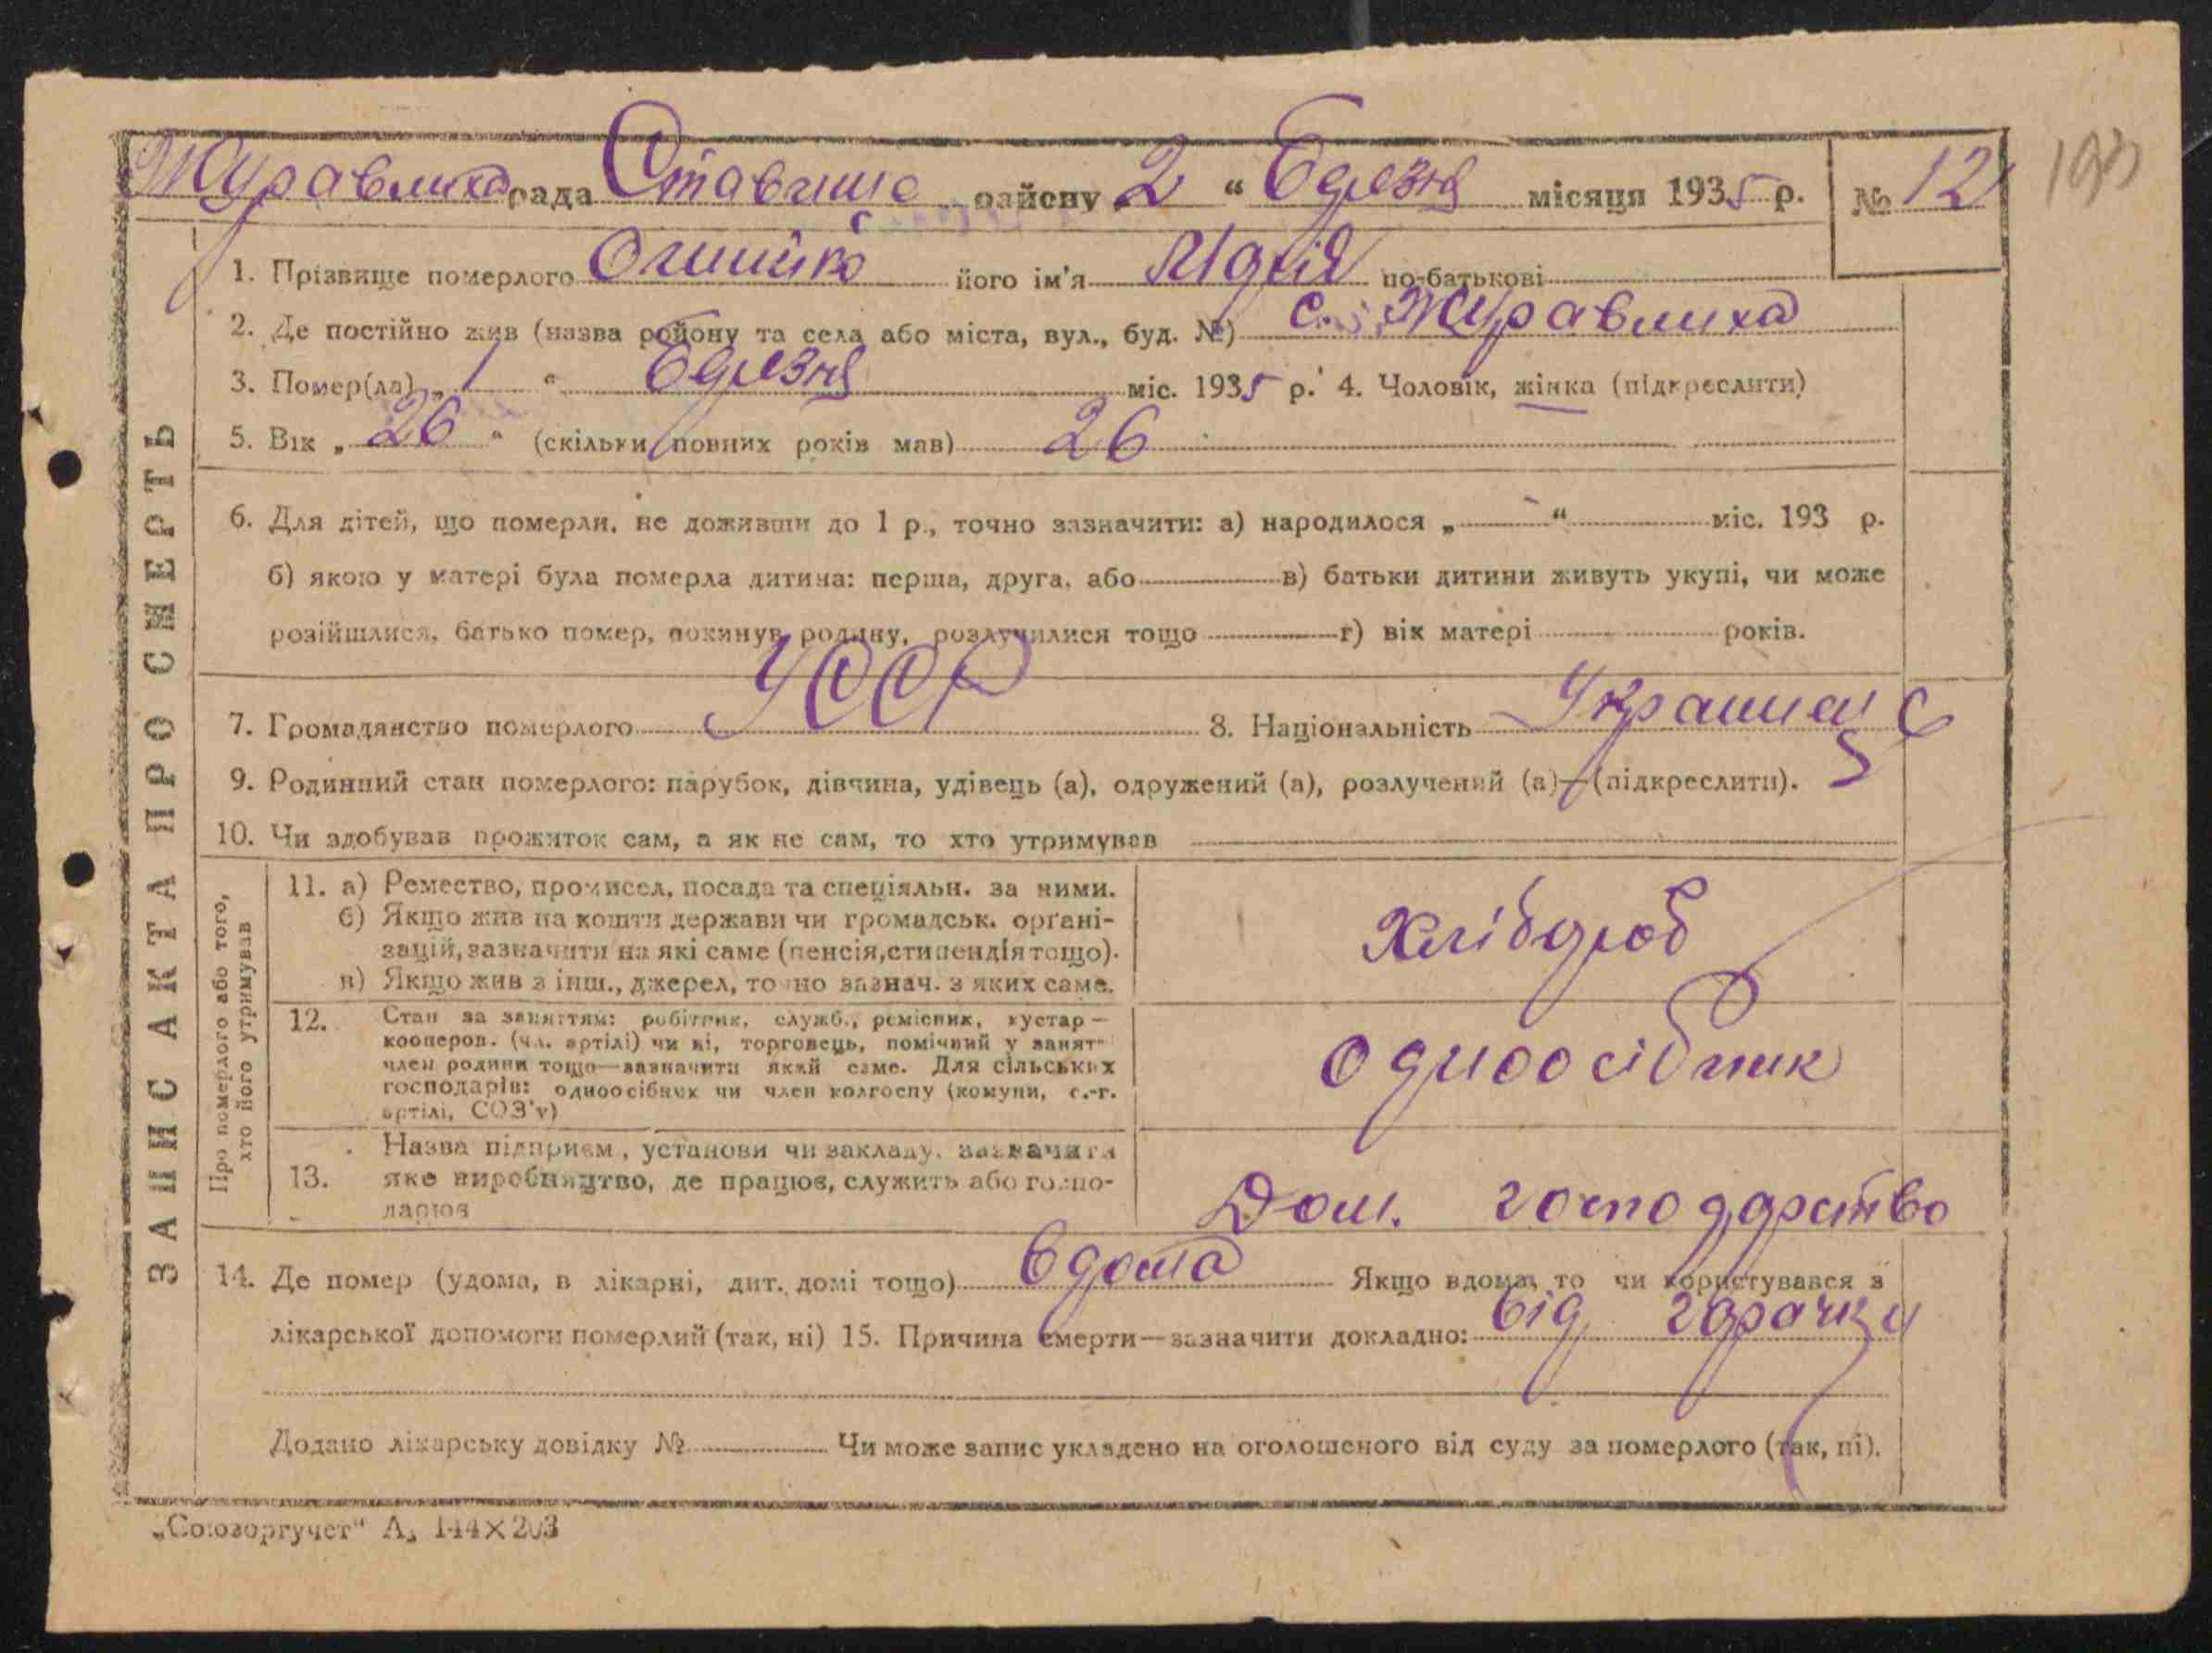 Журавлиха рада Ставище району 2 " Березня місяця 1935 р. № 12
193
1. Прізвище померлого Олійнік його ім'я по-батькові
2. Де постійно жив (назва району та села або міста, вул., буд. №) с. Журавлиха
3. Помер(ла) „ 1 " Березня міс. 1935 р. 4. Чоловік, жінка (підкреслити)
5. Вік „ 26 " (скільки повних років мав) 26
6. Для дітей, що померли, не доживши до 1 р., точно зазначити: а) народилося „ " міс. 193 р.
б) якою у матері була померла дитина: перша, друга, або в) батьки дитини живуть укупі, чи може
розійшлися, батько помер, покинув родину, розлучилися тощо г) вік матері років.
7. Громадянство померлого УССР 8. Національність
9. Родинний стан померлого: парубок, дівчина, удівець (а), одружений (а), розлучений (а)—(підкреслити).
10. Чи здобував прожиток сам, а як не сам, то хто утримував
ЗАПИС АКТА ПРО СМЕРТЬ
Про померлого або того,
хто його утримував
11. а) Ремество, промисел, посада та спеціяльн. за ними.
б) Якщо жив на кошти держави чи громадськ. орґані-
зацій, зазначити на які саме (пенсія, стипендія тощо).
в) Якщо жив з інш., джерел, точно зазнач. з яких саме.
Хлібороб
12. Стан за заняттям: робітник, служб., ремісник, кустар —
кооперов. (чл. артілі) чи ні, торговець, помічний у занят-
член родини тощо—зазначити який саме. Для сільських
господарів: одноосібник чи член колгоспу (комуни, с.-г.
артілі, СОЗ'у)
одноосібник
13. Назва підприєм, установи чи закладу, зазначити
яке виробництво, де працює, служить або госпо-
дарює
Дом. господарство
14. Де помер (удома, в лікарні, дит. домі тощо) вдома Якщо вдома, то чи користувався з
лікарської допомоги померлий (так, ні) 15. Причина смерти—зазначити докладно: від горячки
Додано лікарську довідку № Чи може запис укладено на оголошеного від суду за померлого (так, ні).
„Союзоргучет" А₅ 144×203